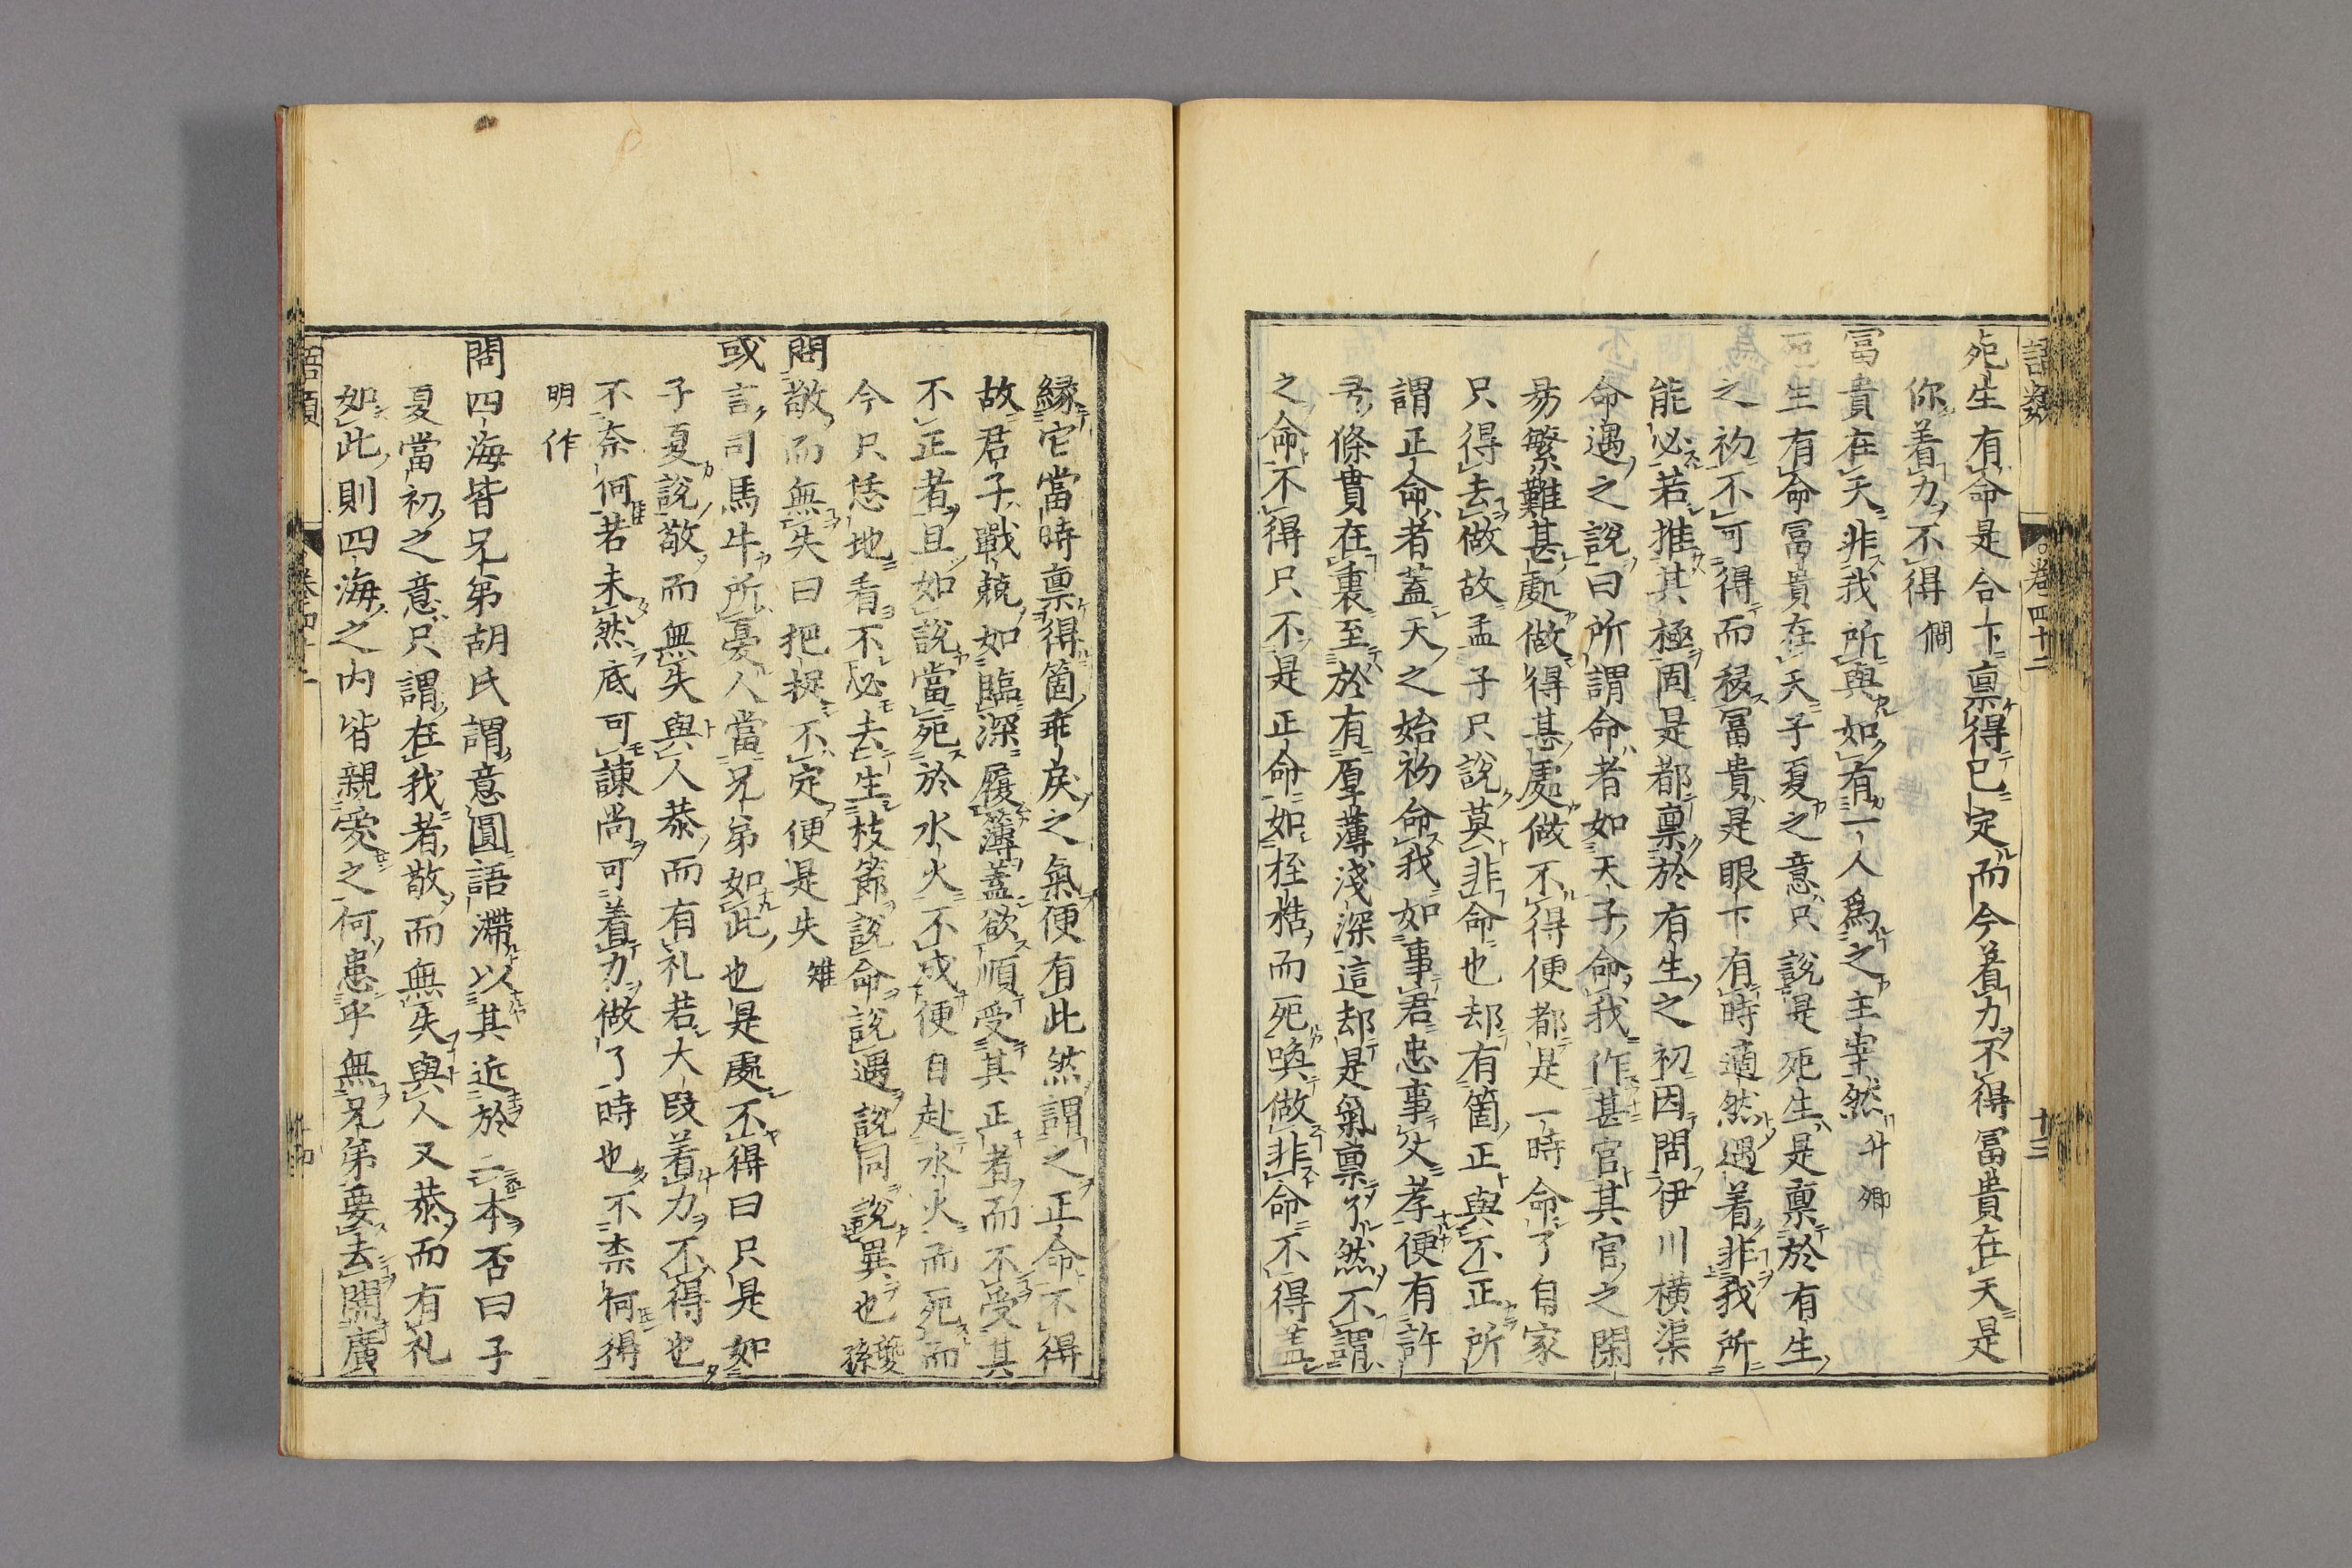 語類 卷四十二 十三
死生有命是合下稟得已定而今着力不得冨貴在天是
你着力不得 僩
冨貴在天非我所與如有一人爲之主宰然 升卿
生有命冨貴在天子夏之意只說是死生是稟於有生
之初不可得而移冨貴是眼下有時適然遇着非我所
能必若推其極固是都稟於有生之初因問伊川橫渠
命遇之說曰所謂命者如天子命我作甚官其官之閑
易繁難甚處做得甚處做不得便都是一時命了自家
只得去做故孟子只說莫非命也却有箇正與不正所
謂正命者蓋天之始初命我如事君忠事父孝便有許
多條貫在裏至於有厚薄淺深這却是氣稟了然不謂
之命不得只不是正命如桎梏而死喚做非命不得蓋
緣它當時稟得箇乖戾之氣便有此然謂之正命不得
故君子戰兢如臨深履薄蓋欲順受其正者而不受其
不正者且如說當死於水火不成便自赴水火而死而
今只恁地看不必去生枝節說命說遇說同說異也 夔孫
問敬而無失曰把捉不定便是失 雉
或言司馬牛所憂人當兄弟如此也是處不得曰只是如
子夏說敬而無失與人恭而有礼若大段着力不得也
不奈何若未然底可諫尚可着力做了時也不柰何得
明作
問四海皆兄弟胡氏謂意圓語滯以其近於二本否曰子
夏當初之意只謂在我者敬而無失與人又恭而有礼
如此則四海之内皆親愛之何患乎無兄弟要去開廣
語類 卷四十二 十四